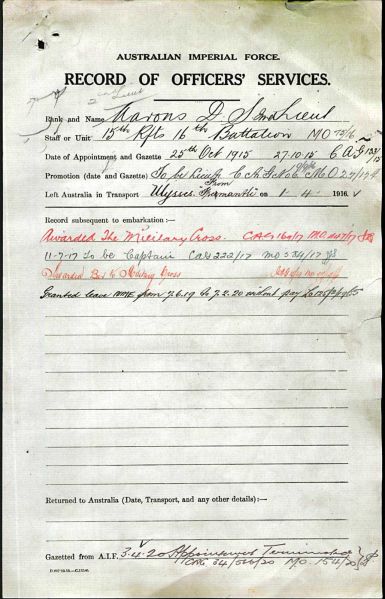 AUSTRALIAN IMPERIAL FORCE.
RECORD OF OFFICERS' SERVICES.
2nd Lieut
Rank and Name Aarons D S 2nd Lieut
Staff or Unit 15th Rfts 16th Battalion MO
Date of Appointment and Gazette 25th Oct 1915 27-10-15 C A G
Promotion (date and Gazette) To be Lieut C.A.G No MO
From
Left Australia in Transport Ulysses Fremantle on 1-4- 1916.
Record subsequent to embarkation:—
Awarded The Military Cross. CAG 169/17 MO
11-7-17 To be Captain CAG 222/17 MO 534/17
Awarded Bar to Military Cross
Granted leave from 7.6.19 to 7.2.20 without pay
Returned to Australia (Date, Transport, and any other details):—
Gazetted from A.I.F. 3.4.20 Appointment Terminated
CAG MO. 154/20